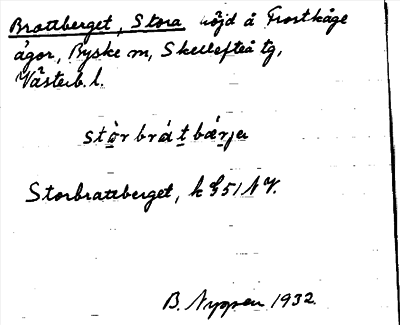 Brattberget, Stora höjd å Frostkåge
ägor, Byske sn, Skellefteå tg,
Västerb. l.
stòr brát bærje
Storbrattberget, k G 51 NV.
B. Nygren 1932.